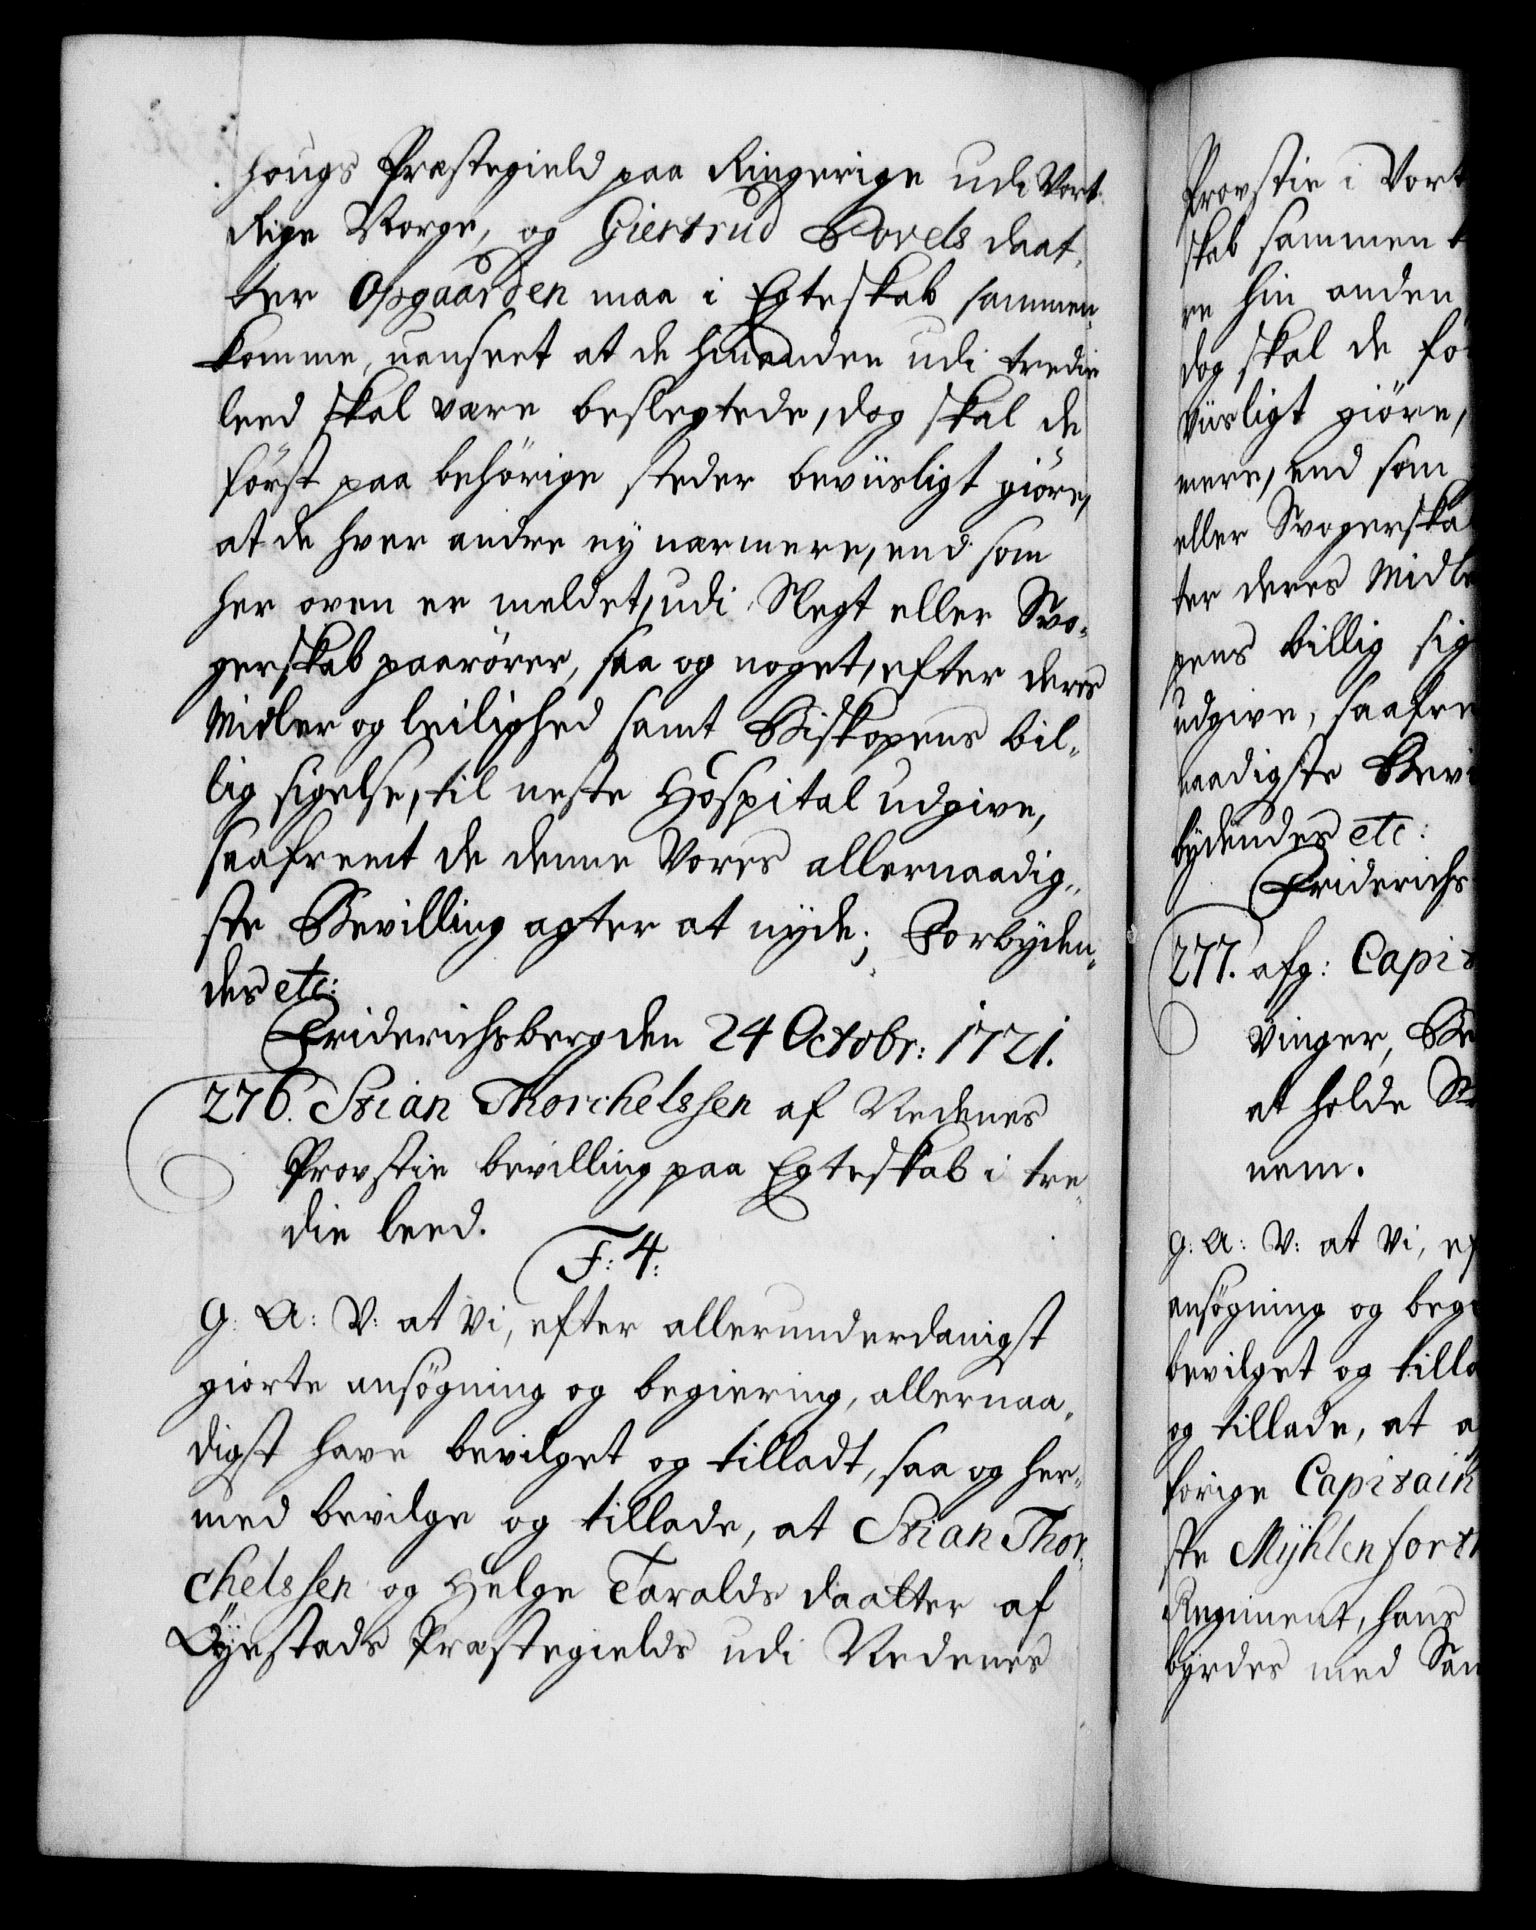 hougs Præstegield paa Ringerige udi Vort
Rige Norge, og Giertrud Povels daat-
ter Opgaarden maa i Egteskab sammen-
komme, uanseet at de hinanden udi tredie
leed skal være beslegtede, dog skal de
först paa behörige steder beviisligt giöre,
at de hver andre ey nærmere, end som
her oven er meldet, udi Slegt eller Svo-
gerskab paarörer, saa og noget, efter deres
Midler og leilighed samt Biskopens bil-
lig sigelse, til neste Hospital udgive,
saafremt de denne Vores allernaadig-
ste Bevilling agter at nyde; Forbyden-
des etc:
Friderichsberg den 24 Octobr: 1721.
276. Stian Thorchelssen af Nedenes
Provstie bevilling paa Egteskab i tre-
die leed.
F: 4:
G: A: V: at Vi, efter allerunderdanigst
giorte ansögning og begiering, allernaa-
digst have bevilget og tilladt, saa og her-
med bevilge og tillade, at Stian Thor-
chelssen og Helge Taralds daatter af
Öyestads Præstegields udi Nedenes
Provstie i Vort
skab sammen
re hin anden
dog skal de
viisligt giöre,
mere, end som
eller Svogerska
ter deres Midle
pens billig sig
udgive, saafre
naadigste Bevi
bydendes etc:
Friderichs
277. afg: Capit
Vinger, Be
at holde
nem.
G: A: V: at Vi, ef
ansögning og begi
bevilget og tilla
og tillade, at a
forige Capitain
ste Myhlenfort
Regiment, hans
byrdes med